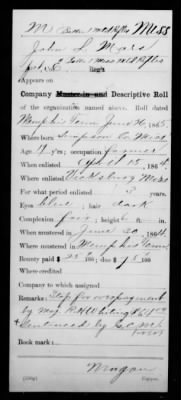 M 2 Batt'n 1 Miss Rifles Miss
John L. Myers
Appears on
Company Muster-in and Descriptive Roll
of the organization named above. Roll dated
Memphis Tenn June 20, 1865.
Where born Simpson Co Miss
Age y'rs; occupation Farmer
When enlisted April 15, 186
Where enlisted Vicksburg Miss
For what period enlisted 3 years.
Eyes blue; hair dark
Complexion Fair; height ft. in.
When mustered in June 20, 186
Where mustered in Memphis Tenn
Bounty paid $ 25 100; due $ 75 100
Where credited
Company to which assigned
Remarks: Stop for overpayment
by Maj
Sentenced by G.C.M.
Book mark:
Morgan
Copyist.